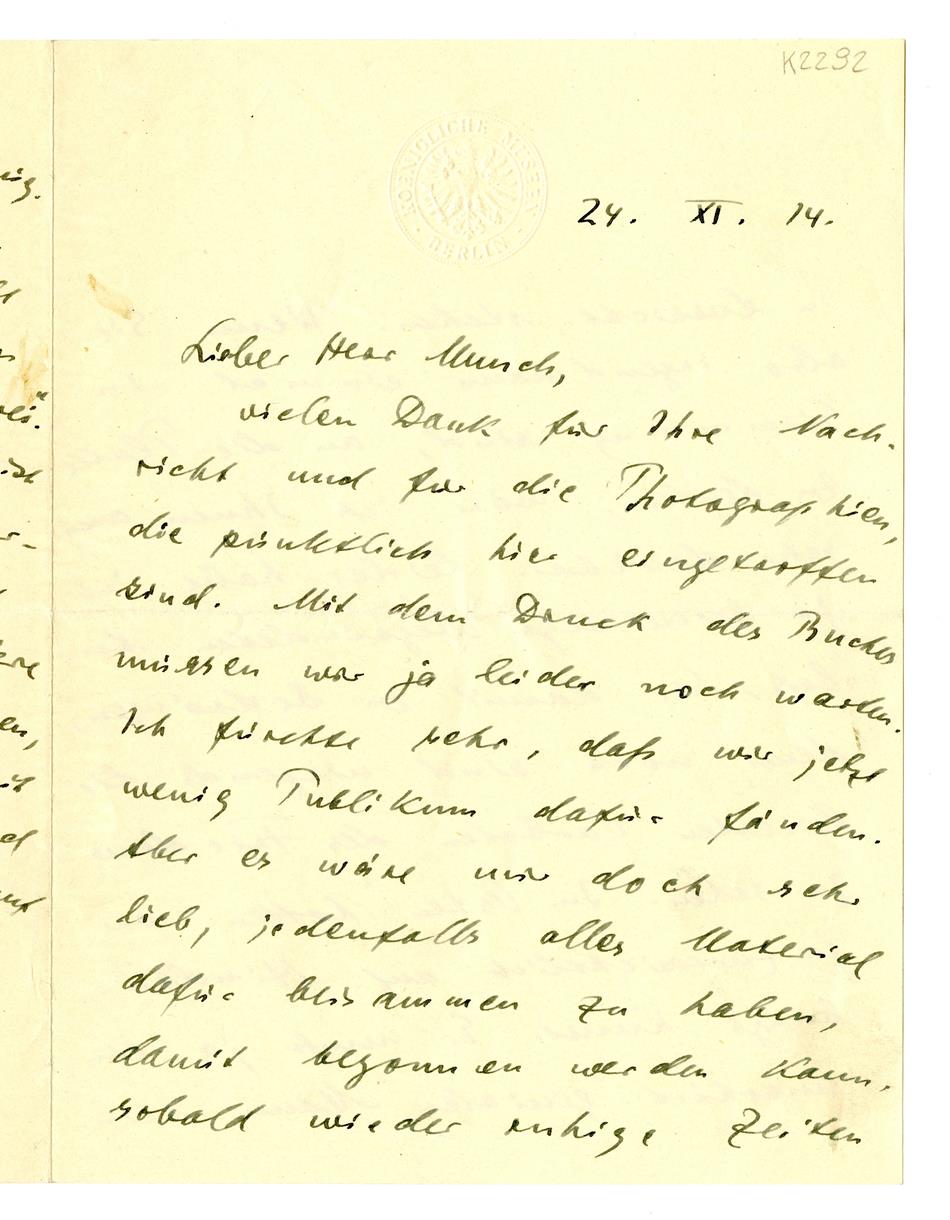 K2292
KOENIGLICHE MUSEEN
BERLIN
24. XI. 14.
Lieber Herr Munch,
vielen Dank für Ihre Nach-
richt und für die Photographien,
die pünktlich hier eingetroffen
sind. Mit dem Druck des Buches
müssen wir ja leider noch warten.
Ich fürchte sehr, daß wir jetzt
wenig Publikum dafür fänden.
Aber es wäre mir doch sehr
lieb, jedenfalls alles Material
dafür beisammen zu haben,
damit begonnen werden kann,
sobald wieder ruhige Zeiten